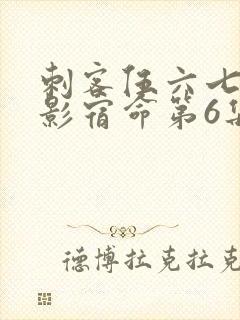 刺客伍六七
影宿命第6集
德博拉克拉克